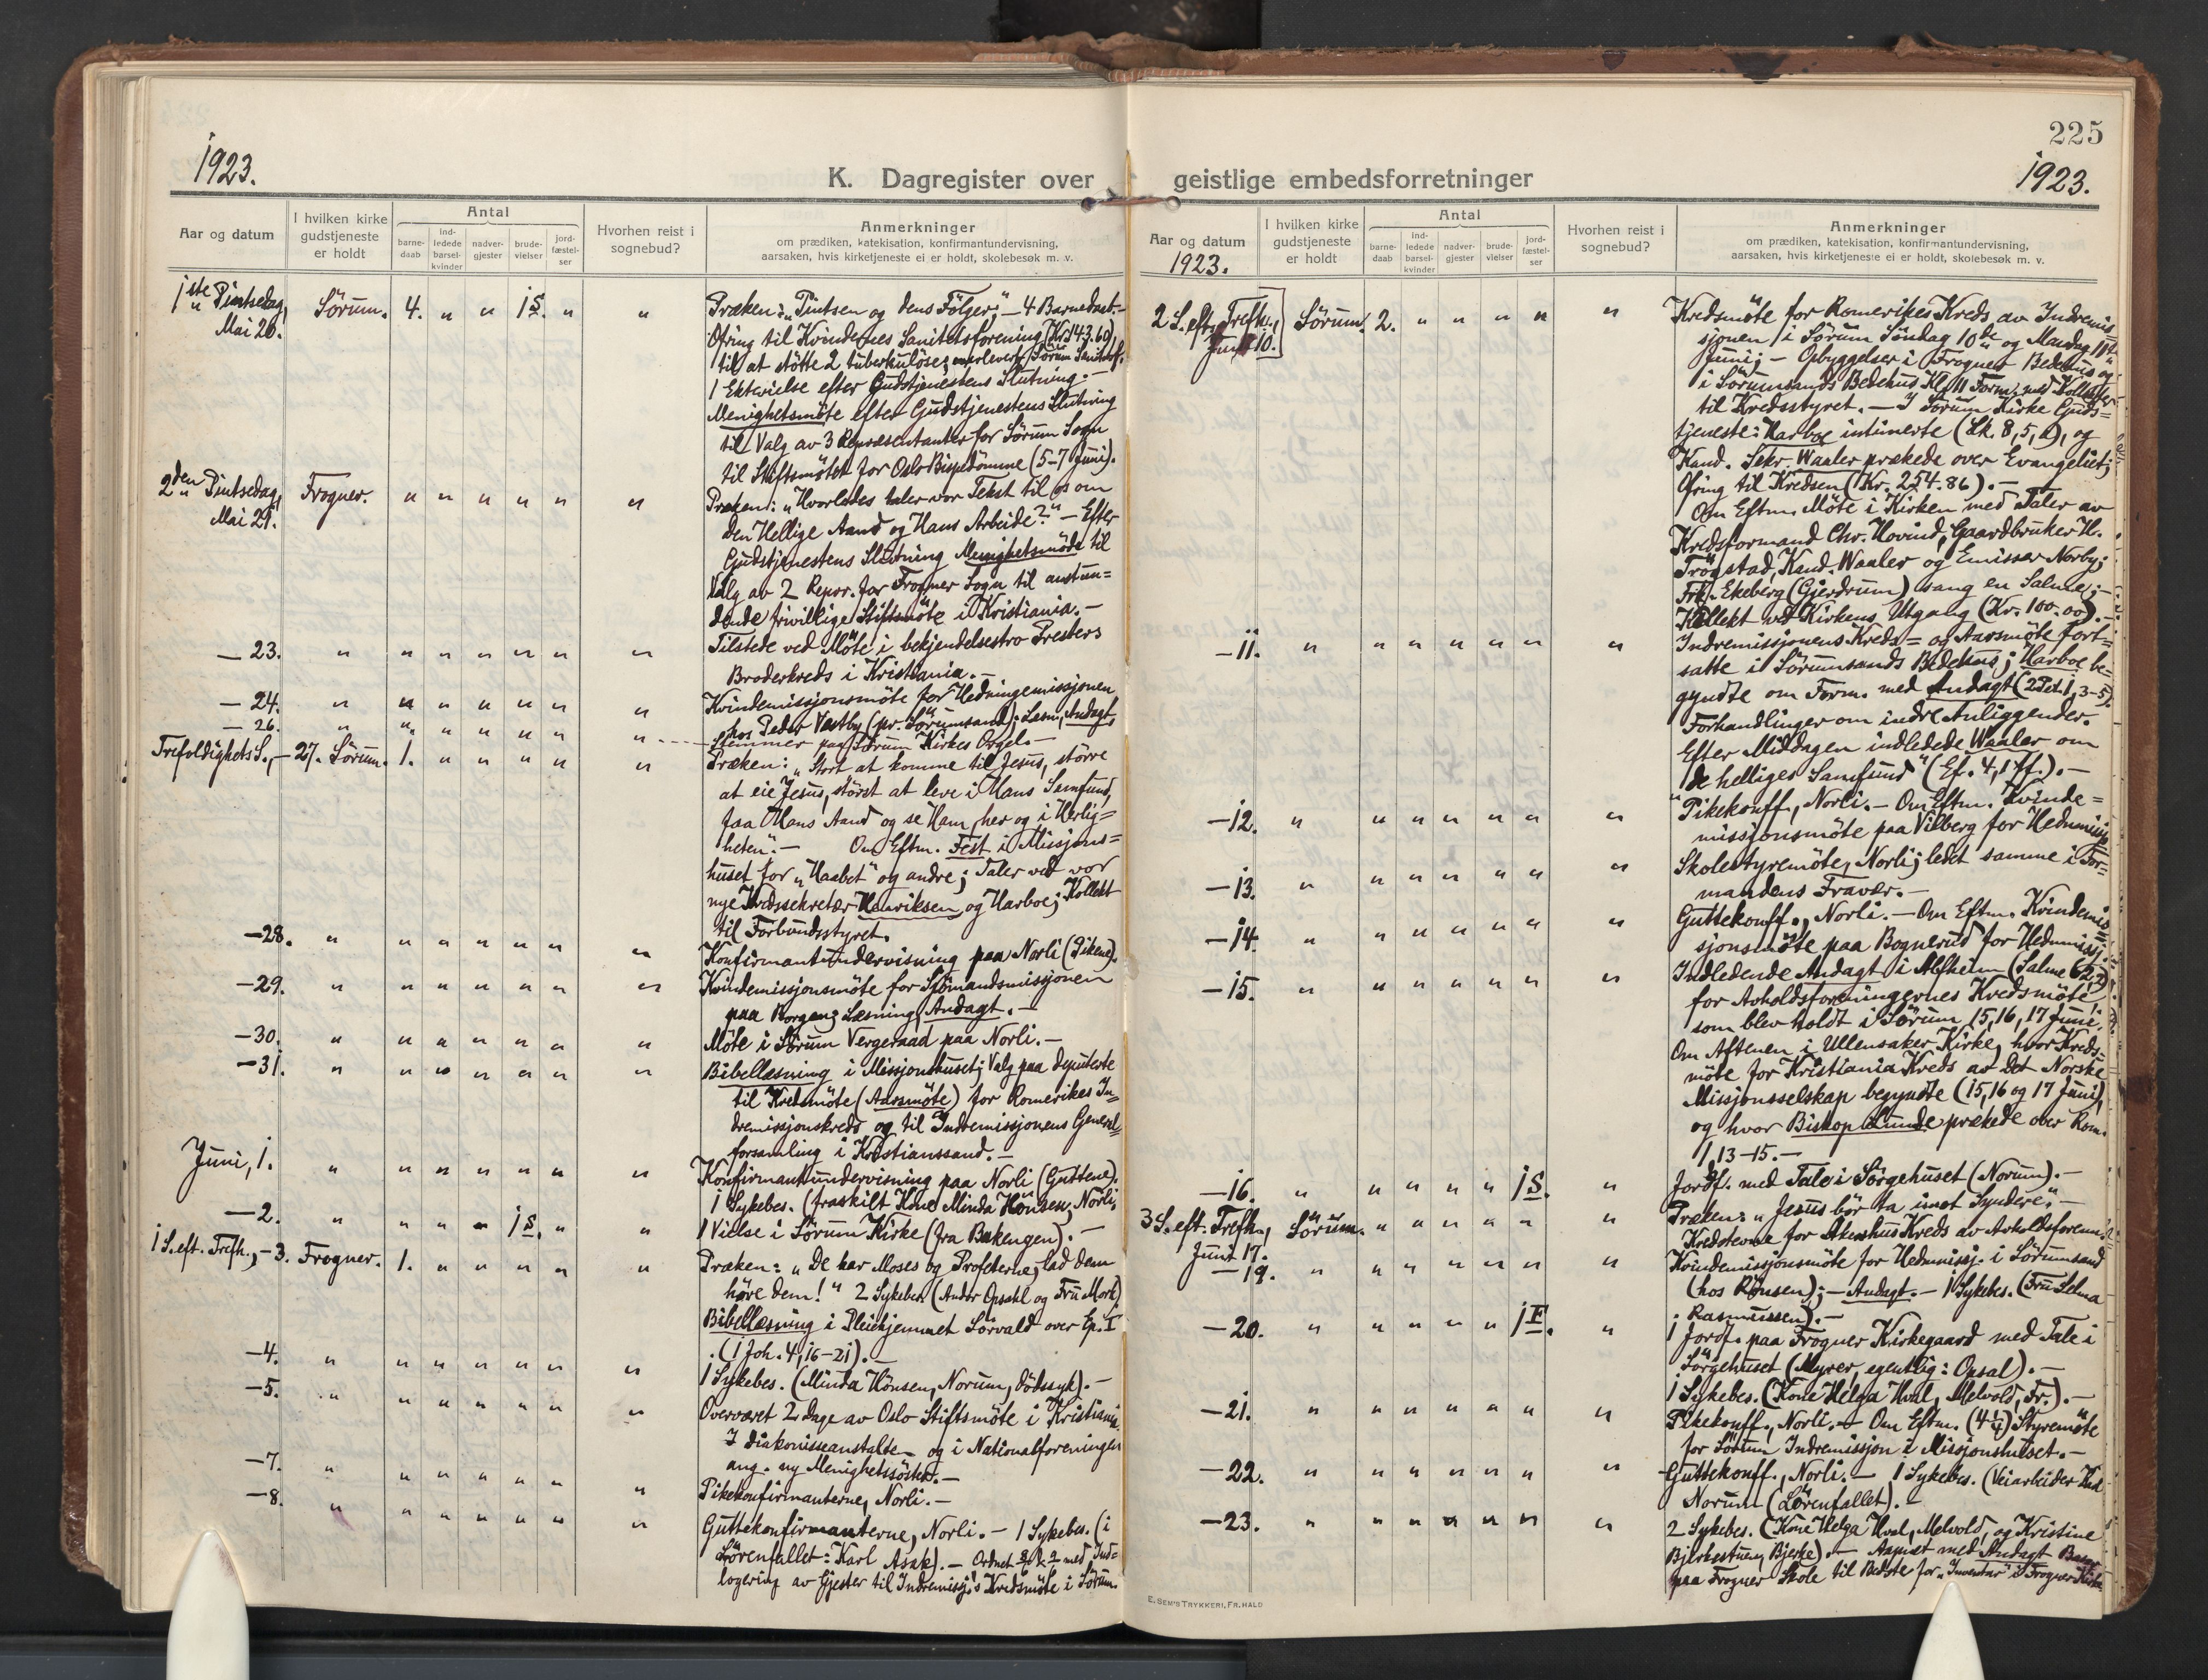 1923.
K. Dagregister over
Aar og datum
I hvilken kirke gudstjeneste er holdt
Antal
barne-daab
ind-ledede barsel-kvinder
nadver-gjester
brude-vielser
jord-fæstel-ser
Hvorhen reist i sognebud?
Anmerkninger
om prædiken, katekisation, konfirmantundervisning,
aarsaken, hvis kirketjeneste ei er holdt, skolebesøk m. v.
1ste Pintsedag, Mai 20. Sörum. 4. " " 1 S. " "
Præken: "Pintsen og dens Fölger;" — 4 Barnedaab. —
Ofring til Kvindernes Sanitetsforening (Kr. 143.60),
til at stötte 2 tuberkulöse; Sörum Sanitetsf.
1 Ektevielse efter Gudstjenestens Slutning. —
Menighetsmöte efter Gudstjenestens Slutning
til Valg av 3 Repræsentanter for Sörum Sogn
til Stiftsmötet for Oslo Bispedömme (5–7 Juni).
2den Pintsedag, Mai 21. Frogner. " " " " " "
Præken: "Hvorledes taler vor Tekst til os om
den Hellige Aand og Hans Arbeide?" — Efter
Gudstjenestens Slutning Menighetsmöde til
Valg av 2 Repr. for Frogner Sogn til anstun=
dende frivillige Stiftsmöte i Kristiania. —
— 23. " " " " " " "
Tilstede ved Möte i bekjendelsestro Presters
Broderkreds i Kristiania. —
— 24. " " " " " " "
Kvindemissjonsmöte for Hedningemissjonen
hos Peder Vestby (pr. Sörumsand); Læsn., Andagt,
— 26. " " " " " " "
Stemmer paa Sörum Kirkes Orgel. —
Trefoldighets S., — 27. Sörum. 1. " " " " "
Præken: "Stort at komme til Jesus, större
at eie Jesus, störst at leve i Hans Samfund,
faa Hans Aand og se Ham her og i Herlig=
heten". — Om Eftm. Fest i Missjons=
huset for "Haabet" og andre; Taler ved vor
nye Kredssekretær Henriksen og Harboe; Kollekt
til Forbundsstyret.
— 28. " " " " " " "
Konfirmantundervisning paa Norli (Pikene).
— 29. " " " " " " "
Kvindemissjonsmöte for Sjömandsmissjonen
paa Borgen; Læsning, Andagt. —
— 30. " " " " " " "
Möte i Sörum Vergeraad paa Norli. —
— 31. " " " " " " "
Bibellæsning i Missjonshuset; Valg paa deputerte
til Kredsmöte (Aarsmöte) for Romerikes In=
dremissjonskreds og til Indremissjonens General=
forsamling i Kristianssand. —
Juni, 1. " " " " " " "
Konfirmantundervisning paa Norli (Guttene).
1 Sykebes. (fraskilt Kone Minda Hönsen, Norli.
— 2. " " " " 1 S. " "
1 Vielse i Sörum Kirke (fra Bakengen). —
1 S. eft. Trefh., — 3. Frogner. 1. " " " " "
Præken: "De har Moses og Profeterne, lad dem
höre dem!" 2 Sykebes. (Andor Opsahl og Fru Mork)
Bibellæsning i Pleiehjemmet Sörvald over Ep. I
(1 Joh. 4, 16–21). —
— 4. " " " " " " "
1 Sykebes. (Minda Hönsen, Norum, dödssyk). —
— 5. " " " " " " "
Overværet 2 Dage av Oslo Stiftsmöte i Kristiania.
I Diakonisseanstalten og i Nationalforeningen
ang. ny Menighetssöster. —
— 7. " " " " " " "
Pikekonfirmanterne, Norli. —
— 8. " " " " " " "
Guttekonfirmanterne, Norli. — 1 Sykebes. (i
Lörenfallet: Karl Asak). — Ordnet med Ind=
logering av Gjester til Indremissj's Kredsmöte i Sörum.
225
1923.
geistlige embedsforretninger
Aar og datum
1923.
I hvilken kirke gudstjeneste er holdt
Antal
barne-daab
ind-ledede barsel-kvinder
nadver-gjester
brude-vielser
jord-fæstel-ser
Hvorhen reist i sognebud?
Anmerkninger
om prædiken, katekisation, konfirmantundervisning,
aarsaken, hvis kirketjeneste ei er holdt, skolebesøk m. v.
2 S. eft. Trefh., Juni 10. Sörum. 2. " " " " "
Kredsmöte for Romerikes Kreds av Indremis
sjonen i Sörum Söndag 10de og Mandag 11te
Juni; — Opbyggelser i Frogner Bedehus og
i Sörumsands Bedehus Kl. 11 Form. med Kollekter
til Kredsstyret. — I Sörum Kirke Guds=
tjeneste: Harboe intimerte (Lk. 8, 5, ), og
Kand. Sekr. Waaler prækede over Evangeliet;
Ofring til Kredsen (Kr. 254.86). —
Om Eftm. Möte i Kirken med Taler av
Kredsformand Chr. Hovind, Gaardbruker H.
Trögstad, Kand. Waaler og Emissær Norby;
Frk. Ekeberg (Gjerdrum) sang en Salme; —
Kollekt ved Kirkens Utgang (Kr. 100.00).
— 11. " " " " " " "
Indremissjonens Kreds= og Aarsmöte fort=
satte i Sörumsands Bedehus; Harboe be=
gyndte om Form. med Andagt (2 Pet. 1, 3–5).
Forhandlinger om indre Anliggender.
Efter Middagen indledede Waaler om
"De helliges Samfund" (Ef. 4, 1 ff.). —
— 12. " " " " " " "
Pikekonff., Norli. — Om Eftm. Kvinde=
missjonsmöte paa Vilberg for Hedn.missj.
— 13. " " " " " " "
Skolestyremöte, Norli; ledet samme i For=
mandens Fravær. —
— 14. " " " " " " "
Guttekonff., Norli. — Om Eftm. Kvindemis
sjonsmöte paa Bognerud for Hednmissj.
— 15. " " " " " " "
Indledende Andagt i Alfheim (Salme 62, )
for Avholdsforeningernes Kredsmöte,
som blev holdt i Sörum 15, 16, 17 Juni.
Om Aftenen i Ullensaker Kirke, hvor Kreds=
möte for Kristiania Kreds av Det Norske
Missjonsselskap begyndte (15, 16 og 17 Juni),
og hvor Biskop Lunde prækede over Rom.
1, 13–15. —
— 16. " " " " " 1 S. "
Jordf. med Tale i Sörgehuset (Norum). —
3 S. eft. Trefh., Juni 17. Sörum. " " " " " "
Præken: "Jesus bör ta imot Syndere". —
Kredstevne for Akershus Kreds av Avholdsforenn.
— 19. " " " " " " "
Kvindemissjonsmöte for Hednmissj. i Sörumsand
(hos Rönsen); — Andagt. — 1 Sykebes. (Fru Selma
Rasmussen). —
— 20. " " " " " 1 F. "
1 Jordf. paa Frogner Kirkegaard med Tale i
Sörgehuset (Myrer, egentlig: Opsal). —
1 Sykebes. (Kone Helga Hval, Melvold, Fr.). —
— 21. " " " " " " "
Pikekonff., Norli. — Om Eftm. (4 ¼) Styremöte
for Sörum Indremissjon i Missjonshuset. —
— 22. " " " " " " "
Guttekonff., Norli. — 1 Sykebes. (Veiarbeider
Norum (Lörenfallet). —
— 23. " " " " " " "
2 Sykebes. (Kone Helga Hval, Melvold, og Kristine
Bjerkestuen, Bjerke). — Aapnet med Andagt Basar
paa Frogner Skole til Bedste for "Inventar" i Frogner Kirke.
E. SEM'S TRYKKERI, FR.HALD